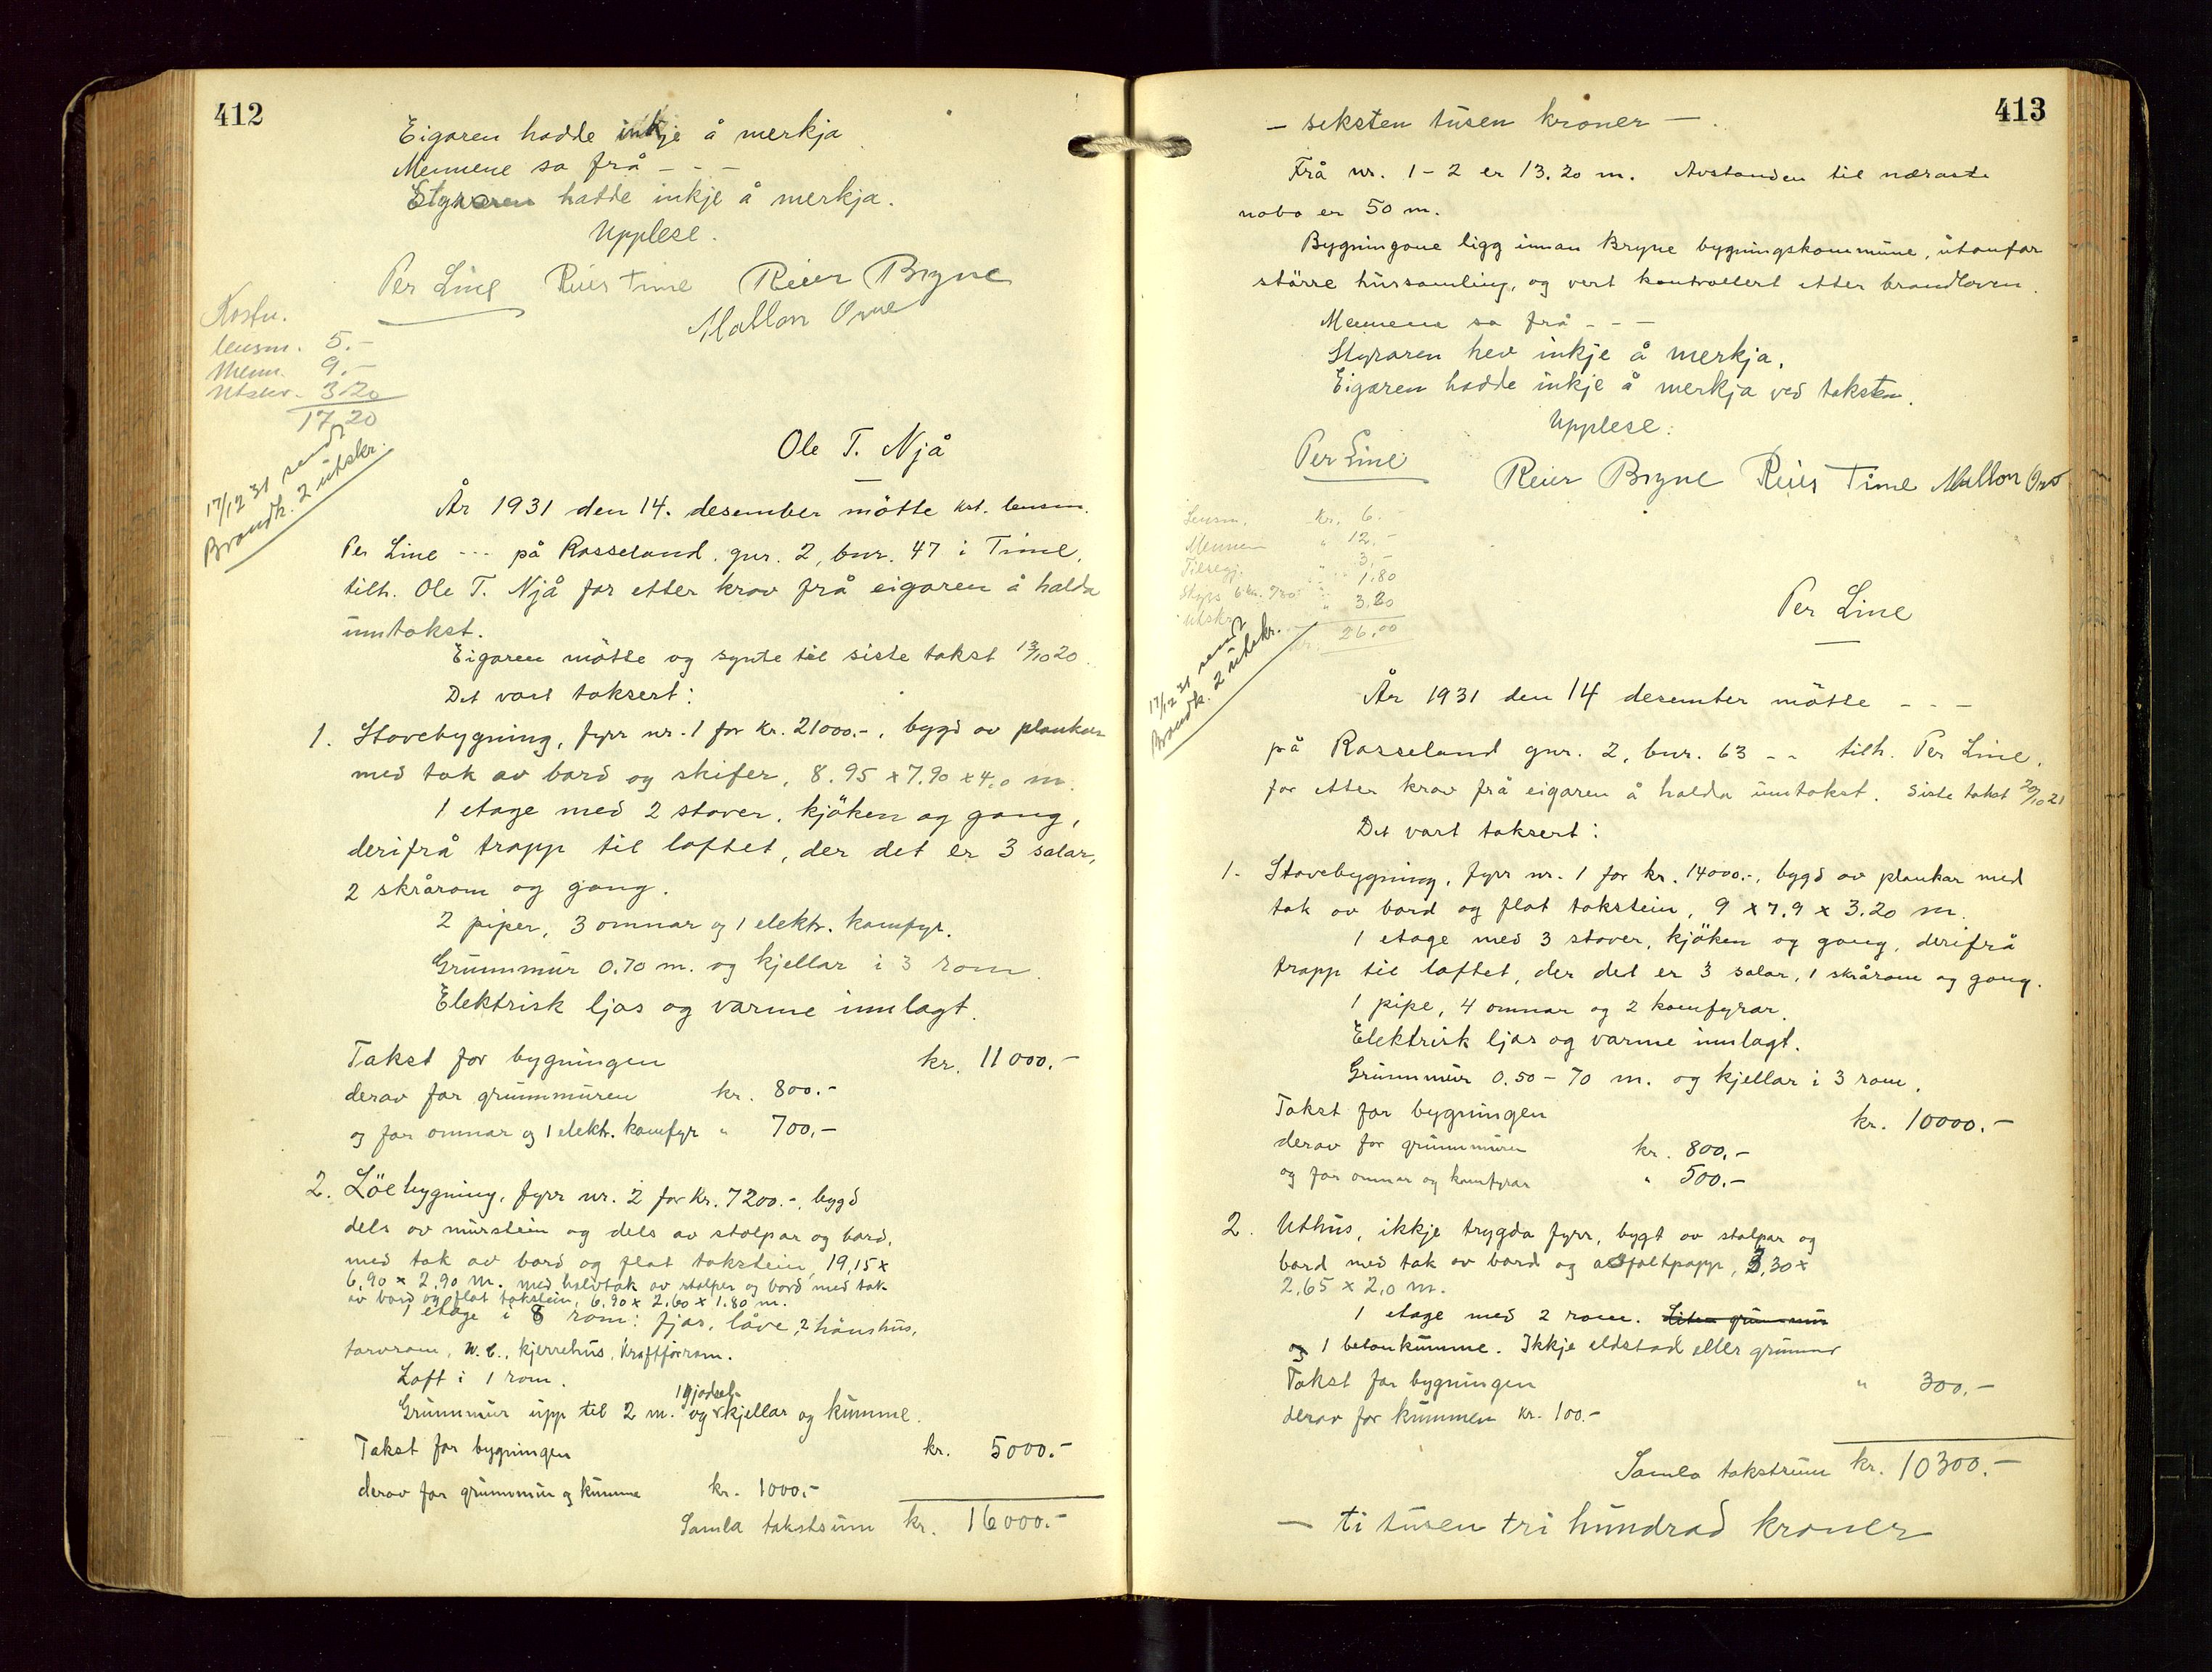 412
Eigaren hadde inkje å merkja
Mennene sa frå - - -
Styraren hadde inkje å merkja.
Upplese.
Per Line Reier Time Reier Bryne
Mallon Orre
Kostn.
lensm. 5.-
Menn. 9.-
Utskr. 3.20
17,20
17/12 31 sendt
Brandk. 2 utskr.
Ole T. Njå
År 1931 den 14. desember mötte kst. lensm.
Per Line --- på Rosseland, gnr. 2, bnr. 47 i Time,
tilh. Ole T. Njå for etter krav frå eigaren å halda
umtakst.
Eigaren mötte og synte til siste takst 13/10 20.
Det vart taksert:
1. Stovebygning, fyrr nr. 1 for kr. 21000.-, bygd av plankar
med tak av bord og skifer, 8.95 x 7.90 x 4,0 m.
1 etage med 2 stover, kjöken og gang,
derifrå trapp til loftet, der det er 3 salar,
2 skrårom og gang.
2 piper, 3 omnar og 1 elektr. komfyr.
Grunnmur 0.70 m. og kjellar i 3 rom.
Elektrisk ljos og varme innlagt.
Takst for bygningen kr. 11000.-
derav for grunnmuren kr. 800.-
og for omnar og 1 elektr. komfyr " 700,-
2. Löebygning, fyrr nr. 2 for kr. 7200.-, bygd
dels av murstein og dels av stolpar og bord,
med tak av bord og flat takstein, 19,15 x
6,90 x 2.90 m. med halvtak av stolper og bord med tak
av bord og flat takstein, 6.90 x 2.60 x 1.80 m.
1 etage i 8 rom: fjos, låve, 2 hönshus,
torvrom, W.C., kjerrehus, kraftfôrrom.
Loft i 1 rom.
1 gjödsel-
Grunnmur upp til 2 m. og kjellar og kumme.
Takst for bygningen kr. 5000.-
derav for grunnmur og kumme kr. 1000,-
Samla takstsum kr. 16000.-
413
- seksten tusen kroner -.
Frå nr. 1-2 er 13.20 m. Avstanden til næraste
nabo er 50 m.
Bygningane ligg innan Bryne bygningskommune, utanfor
större hussamling, og vert kontrollert etter brandloven.
Mennene sa frå - - -
Styraren hev inkje å merkja.
Eigaren hadde inkje å merkja ved taksten.
Upplese:
Per Line
Reier Bryne Reier Time Mallon Orre
Lensm. kr. 6.-
Mennene " 12.-
Tilsegj. " 3,-
Skyss 6 km. " 1.80
Utskr. " 3.20
kr. 26.00
17/12 31 sendt
Brandk. 2 utskr.
Per Line
År 1931 den 14 desember mötte - - -
på Rosseland gnr. 2, bnr. 63 -- tilh. Per Line,
for etter krav frå eigaren å halda umtakst. Siste takst 20/10 21
Det vart taksert:
1. Stovebygning, fyrr nr. 1 for kr. 14000.-, bygd av plankar med
tak av bord og flat takstein, 9 x 7.9 x 3.20 m.
1 etage med 3 stover, kjöken og gang, derifrå
trapp til loftet, der det er 3 salar, 1 skrårom og gang.
1 pipe, 4 omnar og 2 komfyrar.
Elektrisk ljos og varme innlagt.
Grunnmur 0.50 - 70 m. og kjellar i 3 rom.
Takst for bygningen kr. 10000.-
derav for grunnmuren kr. 800,-
og for omnar og komfyrar " 500.-
2. Uthus, ikkje trygda fyrr, bygt av stolpar og
bord med tak av bord og asfaltpapp, 3,30 x
2,65 x 2,0 m.
1 etage med 2 rom. Liten grunnmur
og 1 betonkumme. Ikkje eldstad eller grunnmur
Takst for bygningen " 300.-
derav for kummen kr. 100.-
Samla takstsum kr. 10300.-
- ti tusen tri hundrad kroner